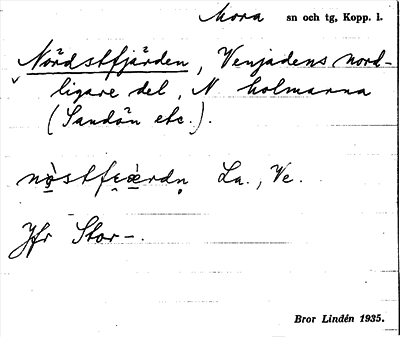 Mora sn och tg, Kopp. l.
Nördstfjärden, Venjadens nord-
ligare del, N holmarna
(Sandön etc.).
La., Ve.
Jfr Stor-.
Bror Lindén 1935.